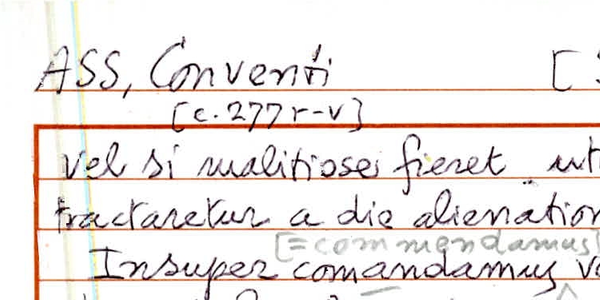 ASS, Conventi [
[c. 277 r-v]
vel si malitiose fieret
tractaretur a die alienation
[= commendamus]
Insuper comandamus